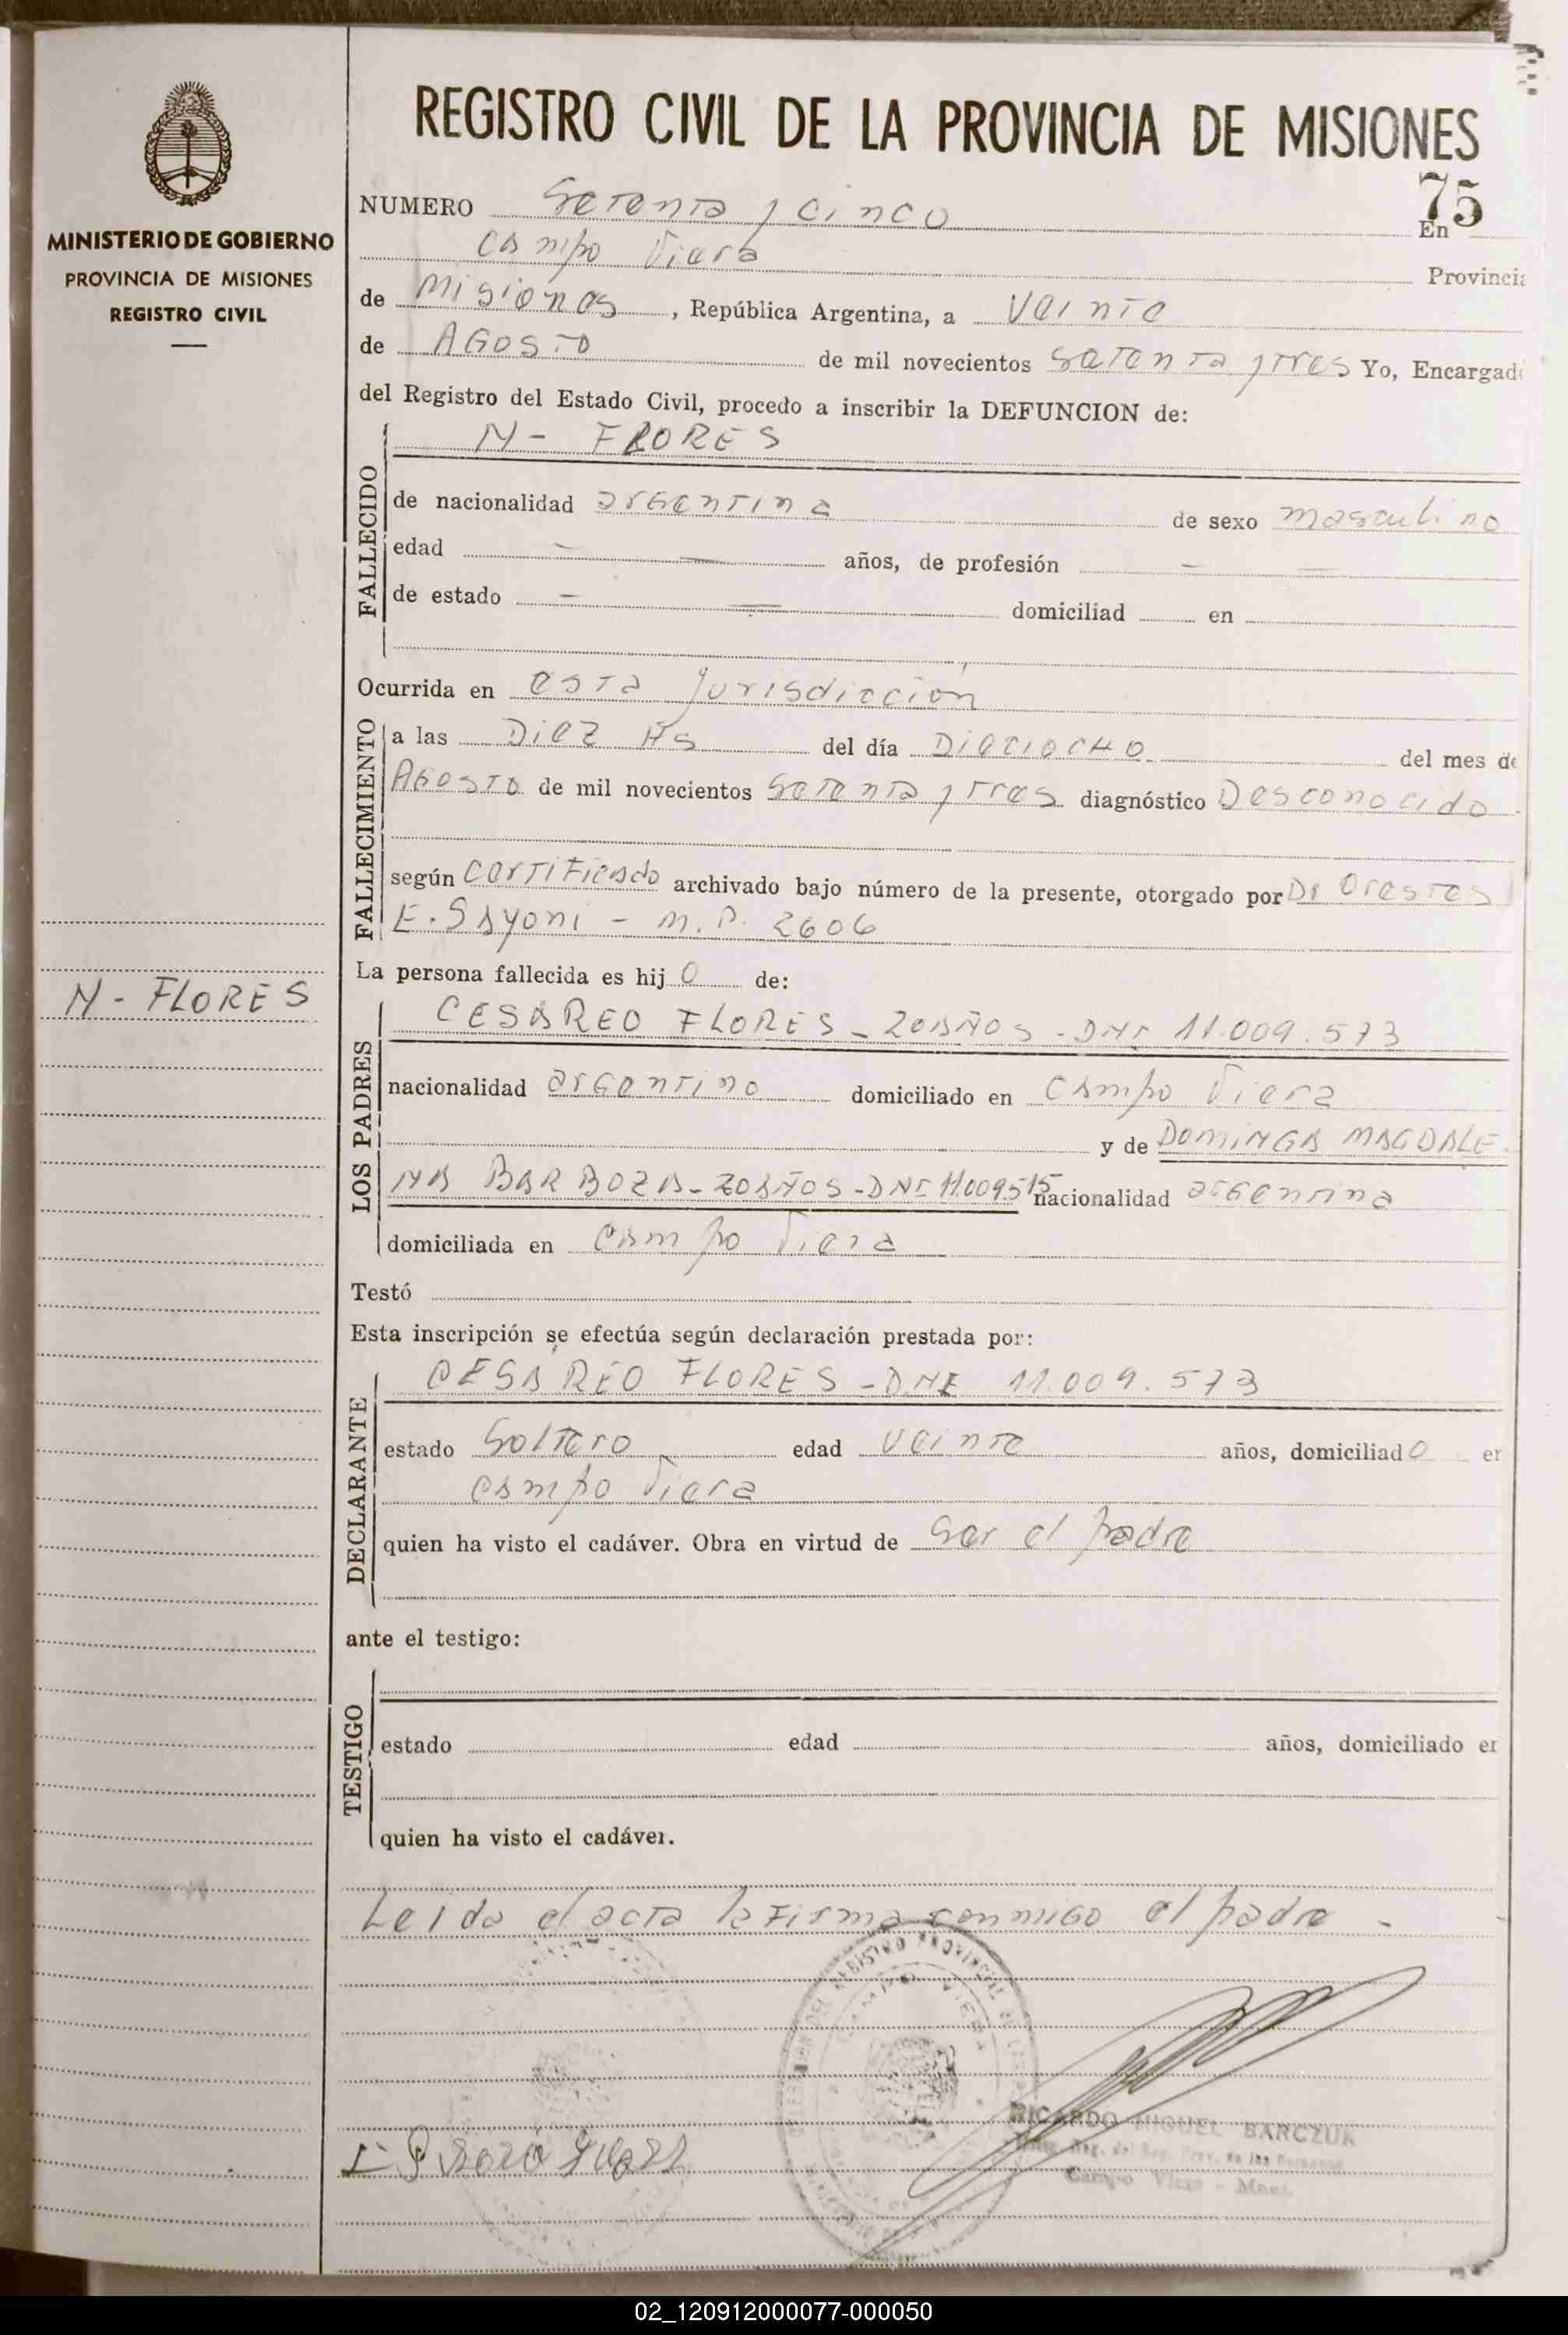 REGISTRO CIVIL DE LA PROVINCIA DE MISIONES
MINISTERIO DE GOBIERNO
PROVINCIA DE MISIONES
REGISTRO CIVIL
NUMERO Setenta y cinco 75
En
Campo Viera Provincia
de Misiones, República Argentina, a Veinte
de AGosto de mil novecientos Setenta y tres Yo, Encargado
del Registro del Estado Civil, procedo a inscribir la DEFUNCION de:
N - FLORES
FALLECIDO
de nacionalidad arGentina de sexo masculino
edad — — años, de profesión — —
de estado — — domiciliad en
Ocurrida en esta jurisdicción
FALLECIMIENTO
a las Diez Hs del día Dieciocho del mes de
AGosto de mil novecientos Setenta y tres diagnóstico Desconocido
según Certificado archivado bajo número de la presente, otorgado por Dr Orestes
E. - M.P. 2606
La persona fallecida es hijo de:
N - FLORES
LOS PADRES
CESAREO FLORES - 20 AÑOS - DNI 11.009.573
nacionalidad arGentino domiciliado en Campo Viera
y de DOMINGA MAGDALE-
NA BARBOZA - 20 AÑOS - DNI 11.009515 nacionalidad arGentina
domiciliada en Campo Viera
Testó
Esta inscripción se efectúa según declaración prestada por:
DECLARANTE
CESAREO FLORES - DNI 11.009.573
estado Soltero edad Veinte años, domiciliado en
Campo Viera
quien ha visto el cadáver. Obra en virtud de Ser el padre
ante el testigo:
TESTIGO
estado edad años, domiciliado en
quien ha visto el cadáver.
Leida el acta la Firma conmiGo el padre -
CAMPO VIERA
RICARDO MIGUEL BARCZUK
Campo Viera - Mnes.
02_120912000077-000050